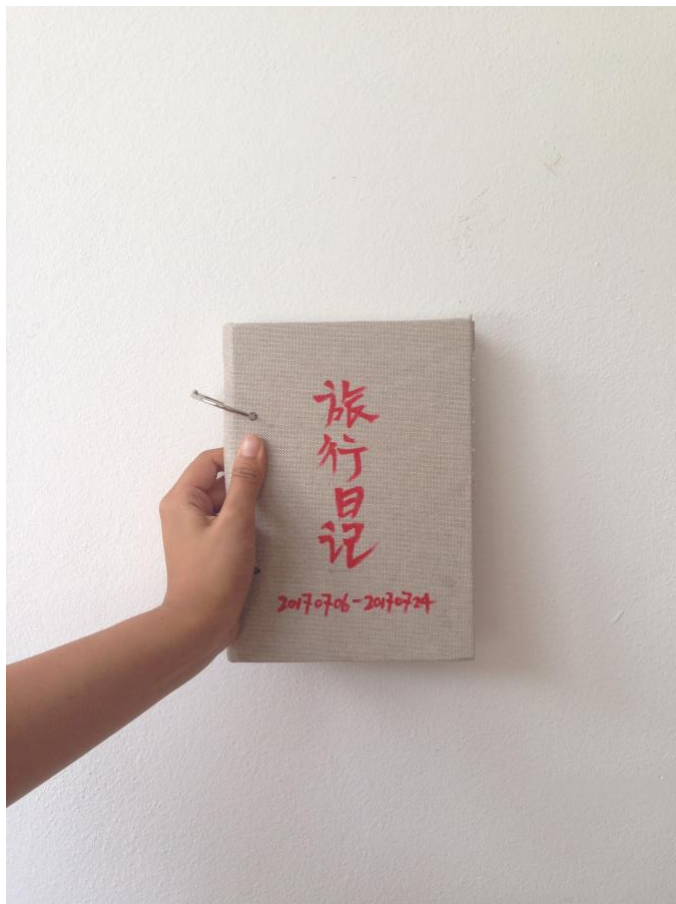 旅行日记
20170706-20170724